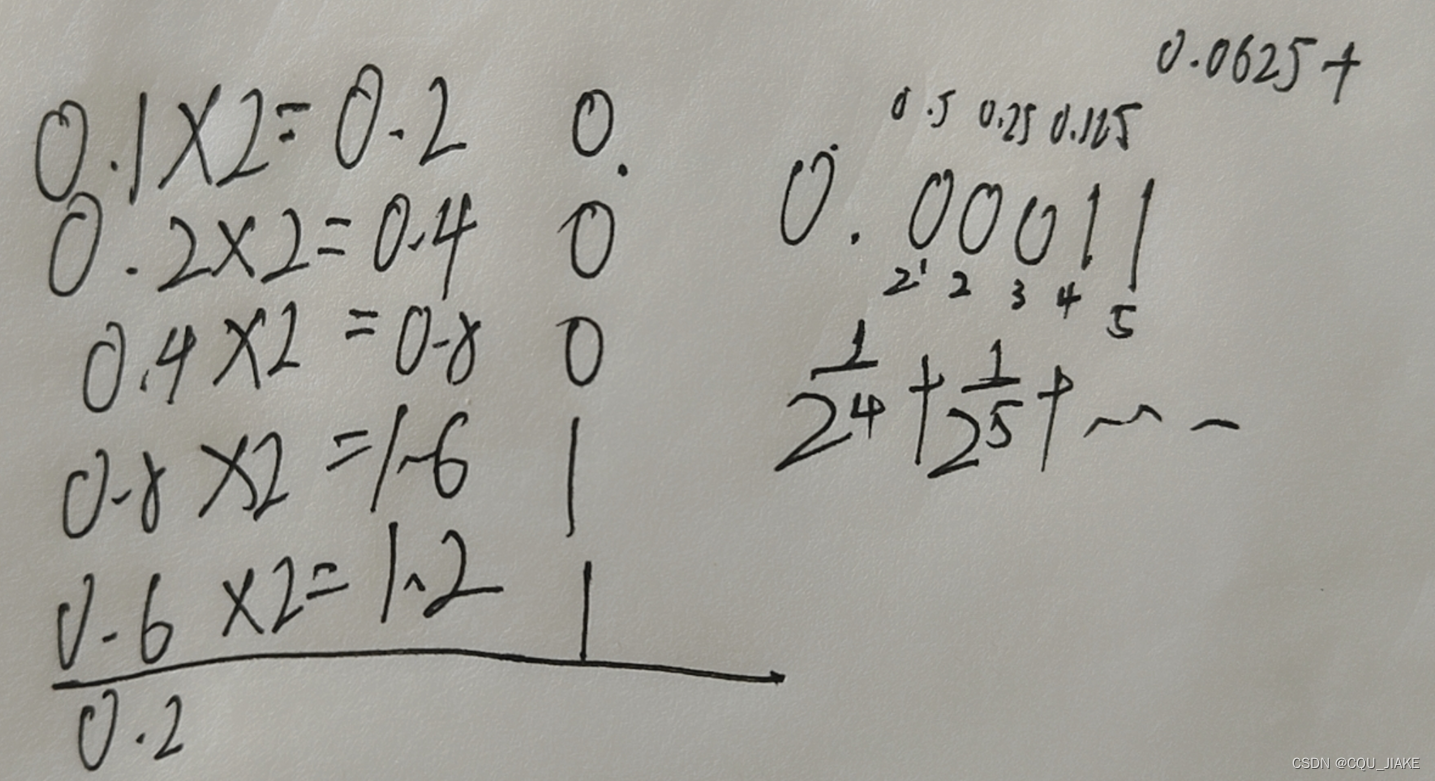 0.1×2=0.2 0.
0.2×2=0.4 0
0.4×2=0.8 0
0.8×2=1.6 1
0.6×2=1.2 1
0.2
0.0625+
0.5 0.25 0.125
0.00011
2¹ 2 3 4 5
1/2⁴+1/2⁵+
CSDN @CQU_JIAKE